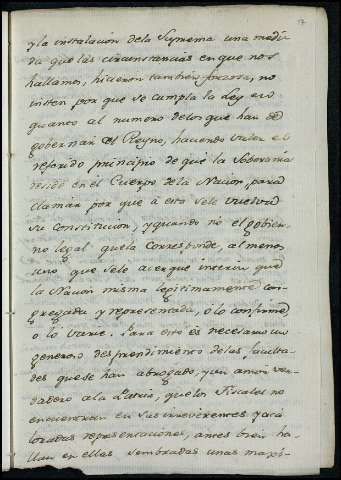 17
y la instalacion dela Suprema una medi-
da que las circunstancias en que nos
hallamos, hicieron tambien forzosa, no
insten por que se cumpla la Ley en
quanto al numero delos que han de
gobernar el Reyno, haciendo valer el
referido principio de que la Soberania
reside en el Cuerpo de la Nacion, para
clamar por que à esta sele vuelva
su Constitucion, y quando no el gobier-
no legal que la corresponde, al menos
uno que sele acerque interin que
la Nacion misma legitimamente con-
gregada y representada, ò lo confirme
ò lo varie. Para esto es necesario un
generoso desprendimiento delas faculta-
des que se han abrogado, y un amor ver-
dadero ala Patria, que los Fiscales no
encuentran en sus irreverentes y aca-
loradas representaciones, antes bien ha-
llan en ellas sembradas unas maxi-